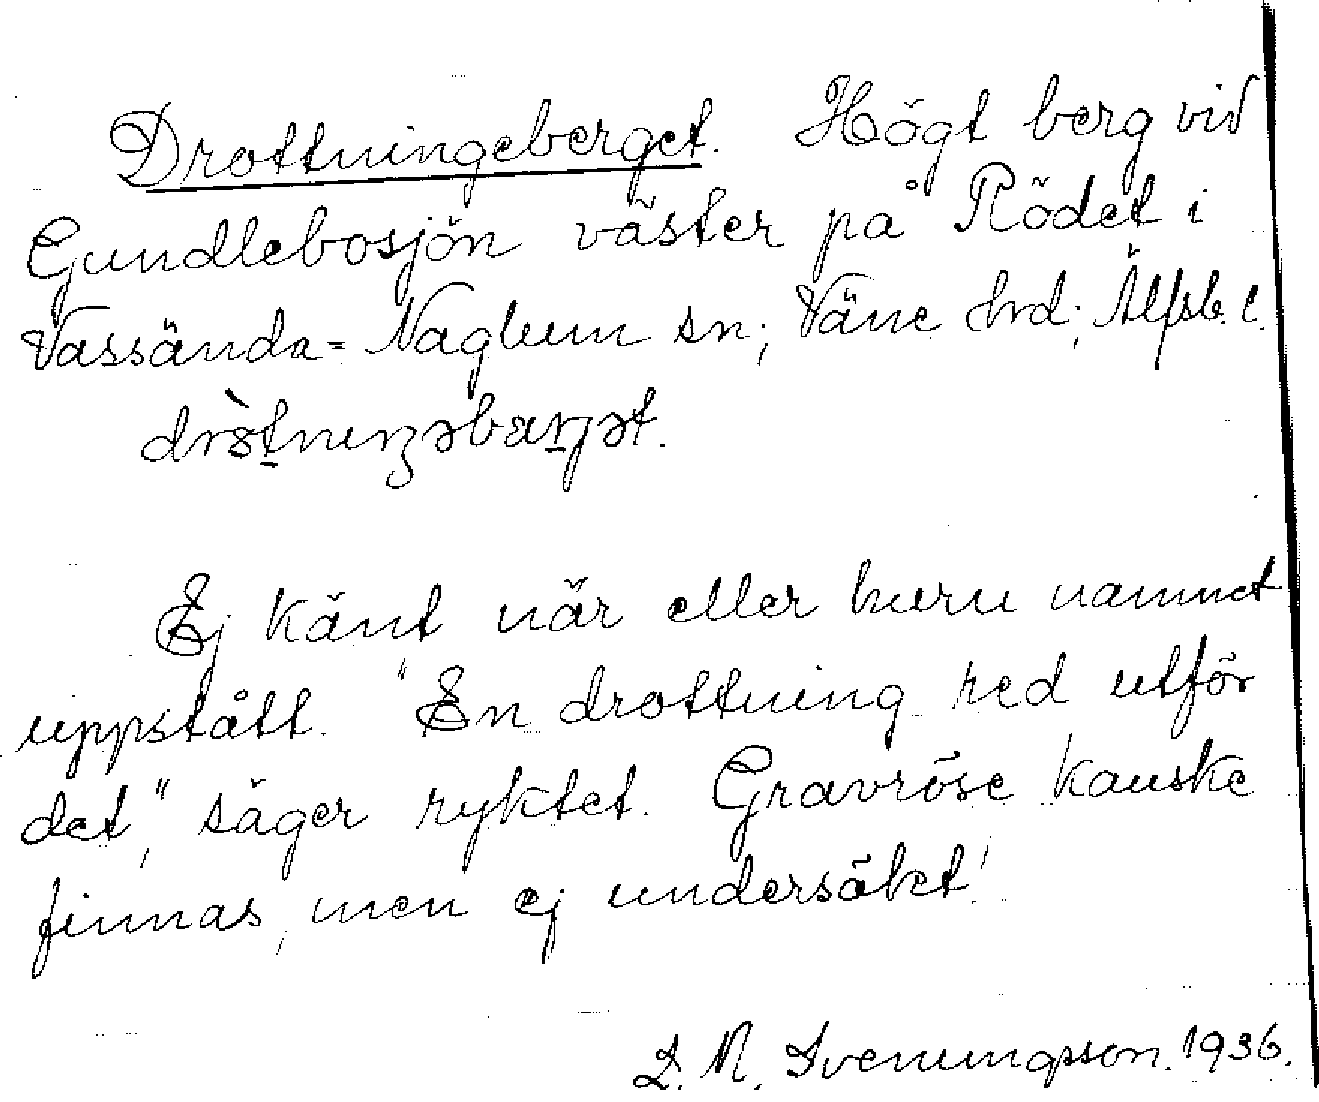 Drottningeberget. Högt berg vid
Gundlebosjön väster på Rödet i
Vassända-Naglum sn; Väne hrd; Älfsb. l.
Ej känt när eller huru namnet
uppstått. "En drottning red utför
det," säger ryktet. Gravröse kanske
finnas, men ej undersökt!
D. N. Svenungsson. 1936.